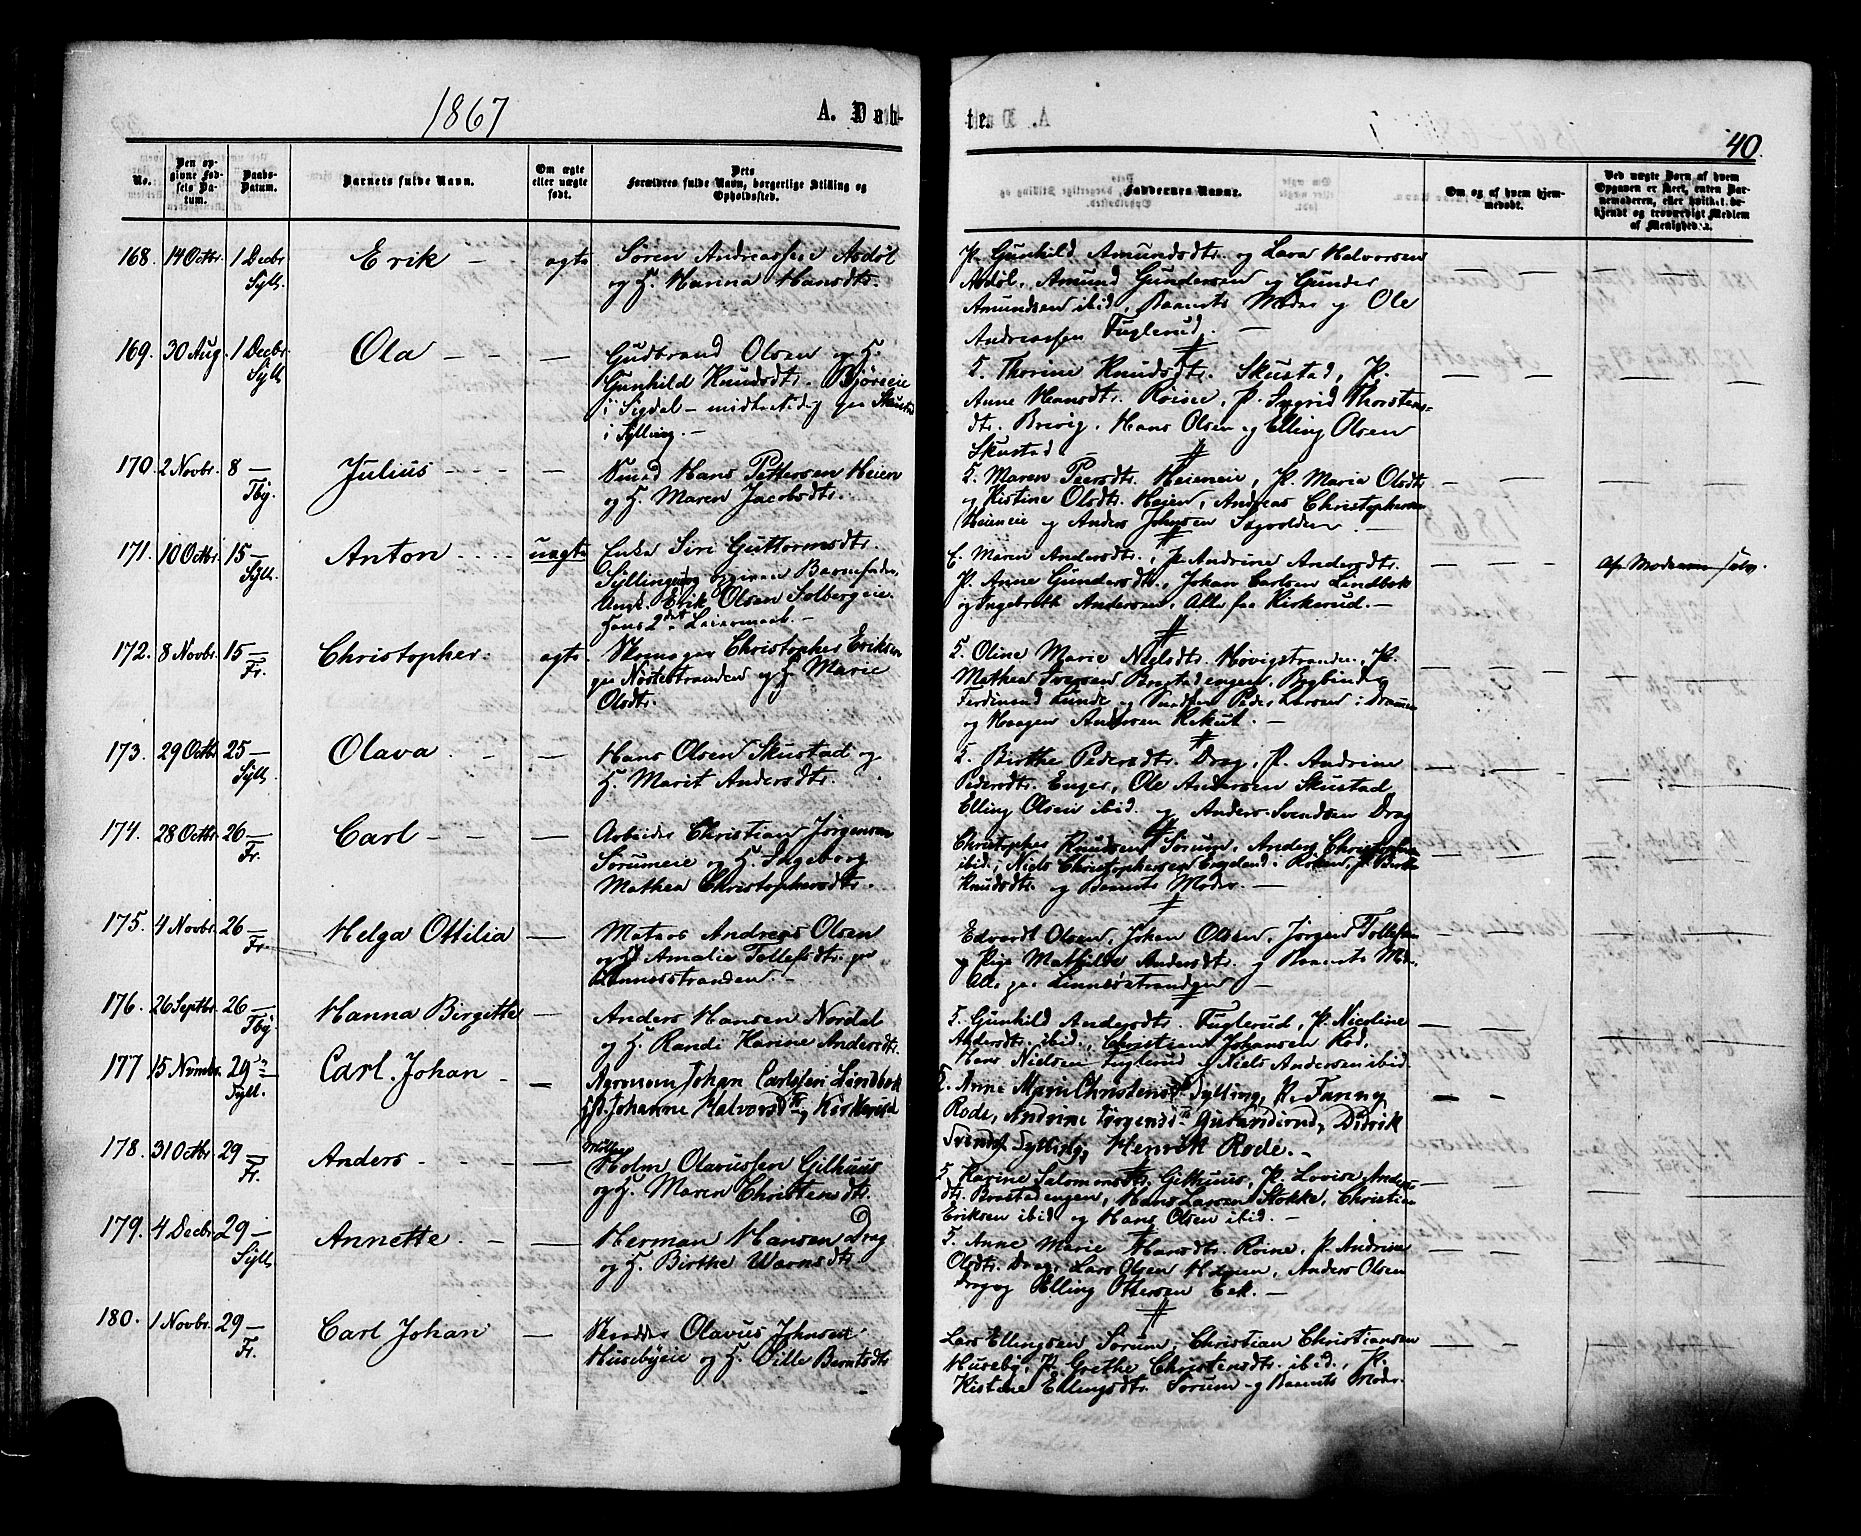 1867
A. Døb-
te
40.
No.
Den op-
givne Fød-
sels Da-
tum.
Daabs-
Datum.
Barnets fulde Navn.
Om ægte
eller uægte
født.
Dets
Forældres fulde Navn, borgerlige Stilling og
Opholdssted.
Faddernes Navne.
Om og af hvem hjem-
medøbt.
Ved uægte Børn af hvem
Opgaven er skeet, enten Bar-
nemoderen, eller hvilket be-
kjendt og troværdigt Medlem
af Menigheden.
168. 14 Octbr. 1 Decbr. Syll. Erik - ægte
Søren Andreassen Asdøl
og H. Karina Hansdtr.
P. Gunhild Amundsdtr. og Lars Halvorsen
Asdøl, Amund Gundersen og Gunder
Amundsen ibid, Barnets Moder og Ole
Andreassen Fuglerud. —
169. 30 Aug. 1 Decbr. Syll Ola - - —
Gudbrand Olsen og H.
Gunhild Knudsdtr. Bjøreeie
i Sigdal - midlertidig paa Skustad
i Sylling. -
H. Thorine Knudsdtr. Skustad, P.
Anne Hansdtr. Roine, P. Sygrid Thorstens-
dtr. Brevig, Hans Olsen og Elling Olsen
Skustad
170. 2 Novbr. 8 — Tby. Julius - - - —
Smed Hans Pettersen Heien
og H. Maren Jacobsdtr.
H. Maren Peersdtr. Heieneie, P. Maria Olsdtr
og Kistine Olsdtr. Heien, Andreas Christophersen
Heieneie og Anders Johnsen
171. 10 Octbr. 15 — Syll. Anton - uægte
Enke Siri Guttormsdtr.
Syllingeng opgiven Barnefader,
Ungk. Erik Olsen Solbergeie.
Hans 2det Leiermaal. -
E. Maren Andersdtr., P. Andrine Andersdtr.
P. Anne Gundersdtr., Johan Carlsen Lindbok
og Ingebreth Andersen. Alle fra Kirkerud. -
Af Moderen selv.
172. 8 Novbr. 15 — Fr. Christopher. ægte
Skomager Christopher Eriksen
paa Nøstestranden og H. Marie
Olsdtr.
H. Oline Marie Nielsdtr. Høvigstranden, P.
Mathea Svensen Bragtadengen,
Ferdinand Lunde og Peder Larsen i Drammen
og Haagen Andersen Rekut. -
173. 29 Octbr 25 — Syll Olava - —
Hans Olsen Skustad og
H. Marit Andersdtr.
H. Birthe Pedersdtr. Drag, P. Andrine
Pedersdtr. Enger, Ole Andersen Skustad
Elling Olsen ibid. og Anders Svendsen Drag
174. 28 Octbr 26 — Fr. Carl - - —
Arbeider Christian Jørgensen
Sørumeie og H. Ingeborg
Mathea Christophersdtr.
Christopher Knudsen Sørum, Anders Christophersen
ibid, Niels Christophersen i Røken, P. Birthe
Knudsdtr. og Barnets Moder. -
175. 4 Novbr. 26 — Fr. Helga Ottilia —
Matros Andreas Olsen
og H. Amalie Tollefsdtr. paa
Linnesstranden -
Edvardt Olsen, Johan Olsen, Jørgen Tollefsen
og Pige Mathilde Andersdtr. og Barnets Moder.
Alle paa Linnesstranden -
176. 26 Septbr. 26 — Tby. Hanna Birgitte —
Anders Hansen Nordal
og H. Randi Karine Andersdtr.
H. Gunhild Andersdtr. Fuglerud, P. Nicoline
Andersdtr. ibid., Christian Johansen Rod,
Hans Nielsen Fuglerud og Niels Andersen ibid.
177 15 Nvmbr. 29 — Syll. Carl Johan - —
Johan Carlssen Lindbok
og H. Johanne Halvorsdtr, Kirkerud
H. Anne Marie Christensdtr Sylling, P. Fanny
Rode, Andrine Jørgensdtr Gunnerud, Didrik
Svends. Sylling, Henrik Rode. -
178. 31 Octbr. 29 — Fr. Anders - - - —
Møller
Holm Olavussen Gilhuus
og H. Maren Christensdtr.
H. Karine Salomonsdtr. Gilhuus, P. Lovise Anders-
dtr. Bragtadengen, Hans Larsen Stokke, Christian
Eriksen ibid og Hans Olsen ibid. -
179. 4 Decbr. 29 — Syll Annette. - —
Herman Hansen Drag
og H. Birthe Warnsdtr.
H. Anne Marie Hansdtr. Roine, P. Andrine
Olsdtr. Drag, Lars Olsen Høgen, Anders Olsen
Drag og Elling Ottersen Eek. -
180. 1 Novbr. 29 — Fr. Carl Johan —
Skrædder Olavus Johnsen
Husebyeie og H. Sille Berntsdtr
Lars Ellingsen Sørum, Christian Christiansen
Huseby, P. Grethe Christensdtr. ibid., P.
Kistine Ellingsdtr. Sørum og Barnets Moder.